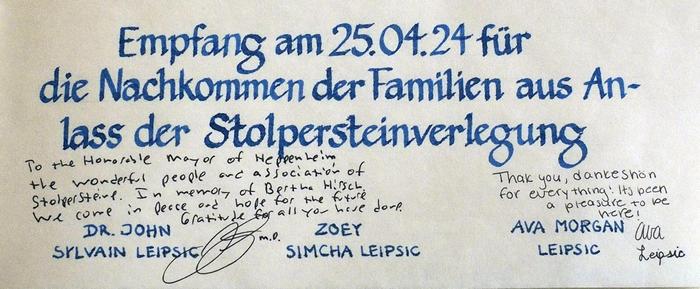 Empfang am 25.04.24 für
die Nachkommen der Familien aus An-
lass der Stolpersteinverlegung
To the Honorable Mayor of Heppenheim
the wonderful people and association of
Stolpersteine. In memory of Bertha Hirsch
We come in peace and hope for the future
Gratitude for all you have done.
DR. JOHN
SYLVAIN LEIPSIC
M.D.
ZOEY
SIMCHA LEIPSIC
Thak you, dankeshön
for everything! Its been
a pleasure to be
here!
AVA MORGAN
LEIPSIC
Ava
Leipsic